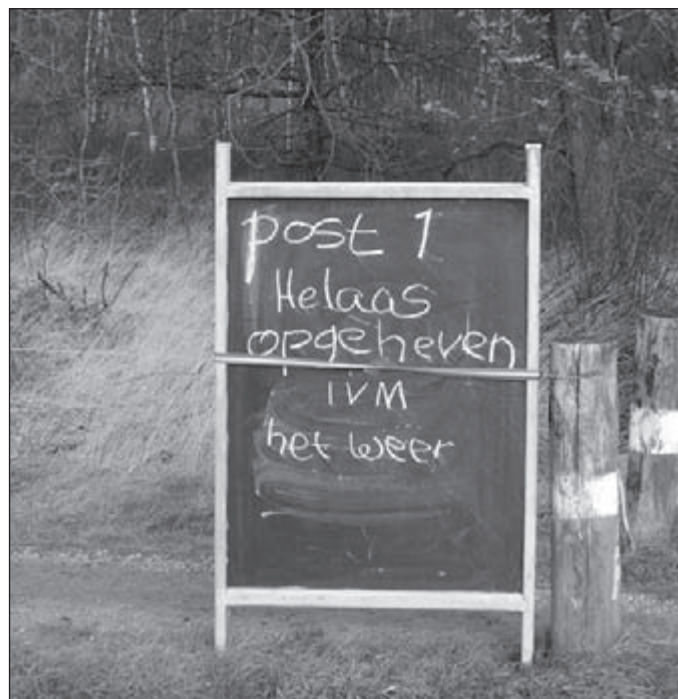 post 1
Helaas
opgeheven
IVM
het weer